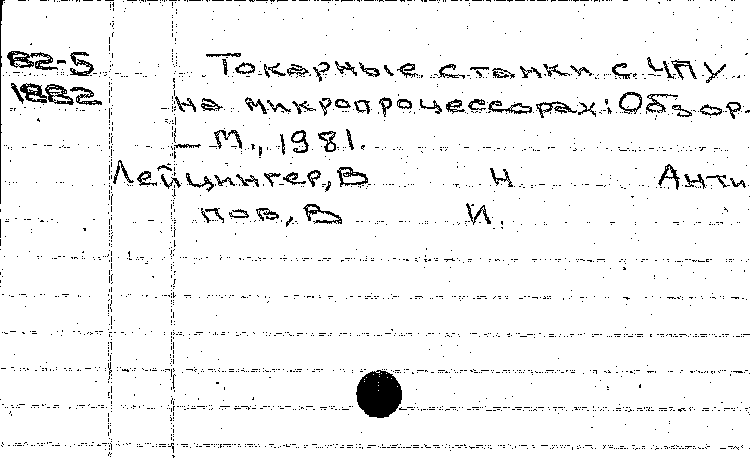 82-5 Токарные станки с ЧПУ
1882 на микропроцессорах: Обзор.
— М., 1981.
Лейцингер, В Н Анти
пов, В И.